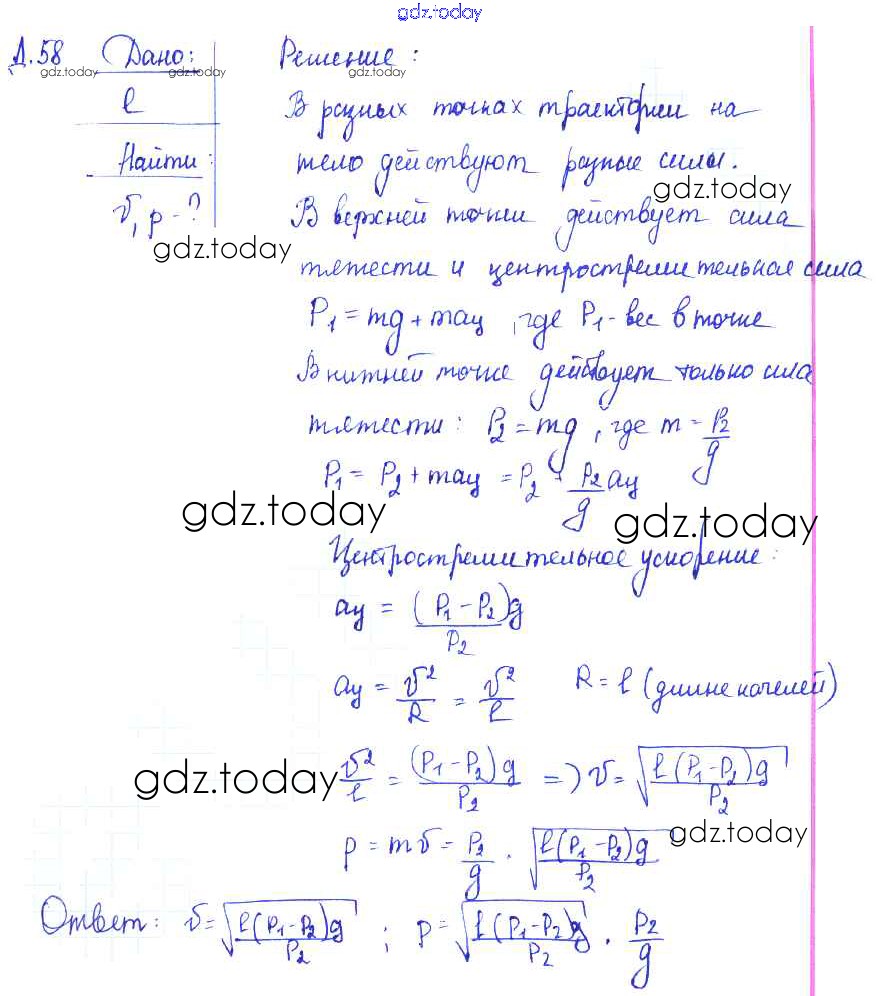 gdz.today
Д.58 Дано: Решение:
gdz.today gdz.today gdz.today
l В разных точках траектории на
Найти: тело действуют разные силы.
gdz.today
v, p - ? В верхней точки действует сила
gdz.today
тяжести и центростремительная сила
P₁ = mg + maц, где P₁ - вес в точке
В нижней точке действует только сила
тяжести: P₂ = mg, где m = P₂/g
P₁ = P₂ + maц = P₂ + P₂/g aц
gdz.today gdz.today
Центростремительное ускорение:
aц = (P₁ - P₂)g/P₂
aц = v²/R = v²/l R = l (длине качелей)
gdz.today
v²/l = (P₁ - P₂)g/P₂ => v = √(l(P₁ - P₂)g/P₂)
gdz.today
p = mv = P₂/g · √(l(P₁ - P₂)g/P₂)
Ответ: v = √(l(P₁ - P₂)g/P₂) ; p = √(l(P₁ - P₂)g/P₂) · P₂/g